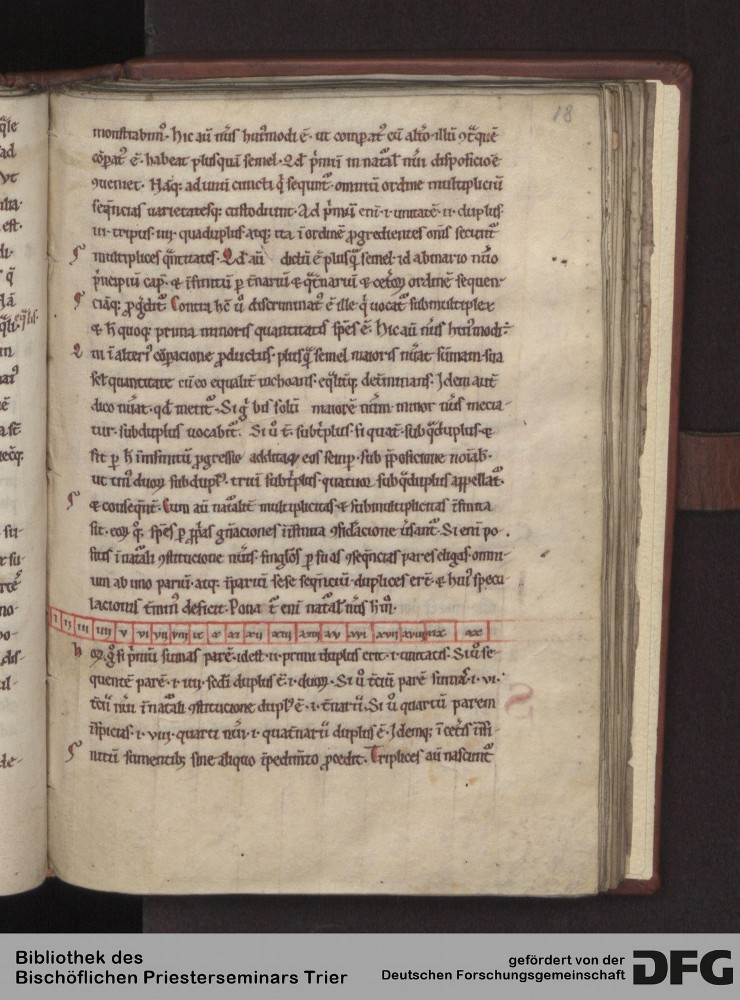 18
monstrabim⁹. hic aū nūs hui⁹modi ē. ut comparat⁹ cū alt̄o illū ꝯt̄ quē
cōpat⁹ ē. habeat plusquā semel. Qd̄ p̄mū in natal nūi disposicioē
ꝯueniet. Nāq; ad unū cuncti q̄ sequnt̄ omniū ordine multipliciū
seq̄ncias uarietatesq; custodiunt. Ad p̄mū eni. i. unitatē. ii. duplus.
iii. tripus. iiii. quaduplus. atq; ita ī ordinē ꝓgredientes om̄s
multiplices q̄ntitates. Qd̄ aū dictū ē plusq̄ semel. id a
p̄ncipiū cap̄. & īfinitū p t̄narıū & q̄t̄narıū & ordinē sequen-
Contra hc̄ ū discriminat⁹ ē ille q̄ uocat̄ submultiplex
& h̄ quoq; prima minoris quantitatis sp̄es ē. Hic aū nūs hui⁹modi ē
ī alteri⁹ cōpacione ꝓductus. plusq̄ semel maioris nūat sum̄am. sua
quantitate cū eo equalit̄ inchoans. eq̄litq; det̄minans. Idem autē
dico nūat. qd̄ metit̄. Si g̊ bis solū maiorē nūm minor nūs mecia-
tur. subduplus uocabit̄. Si ū t̄. subt̄plus. si quat̄. subq̄duplus. &
fit p h̄ in infinitū ꝓgressio additaq; eos semp̄. sub p̄posicione noīab⁹.
ut un⁹ duoꝝ subdupl⁹. triū subt̄plus. quatuor subq̄duplus appellat̄.
& conseq̄nt̄. Cum aū natalit̄ multiplicitas & submultiplicitas īfinita
sit. eoꝝ q̊q; sp̄es p p̄prias gn̄aciones īfinita ꝯsid̄acione ū̄sant̄. Si eni po-
sitis ī natali ꝯstitucione nūis. singlos p suas ꝯseq̄ncias pares eligas. omni-
um ab uno pariū. atq; īpariū sese seq̄nciū. duplices er̄t. & hui⁹ specu
lacionis t̄min⁹ deficit. Ponat̄ eni natal̄ nūs h̄ m̊.
i ii iii iiii v vi vii viii ix x xi xii xiii xiiii xv xvi xvii xviii xix xx
hoꝝ g̊ si p̄mū sumas parē. id est. ii. primi duplus erit. i. unitatis. Si ū se-
quentē parē. i. iiii. sed̄i duplus ē. i. duoꝝ. Si ū t̄ciū parē sumas. i. vi.
t̄cii nūi ī natali ꝯstitucione dupl⁹ ē. i. t̄narii. Si ū quartū parem
īspicias. i. viii. quarti nūi. i. quat̄narii duplus ē. Idemq; ī cet̄is īfi-
nitū sumentib; sine aliquo īpedim̄to ꝓcedit. Triplices aū nascunt̄
Bibliothek des
Bischöflichen Priesterseminars Trier
gefördert von der
Deutschen Forschungsgemeinschaft
DFG